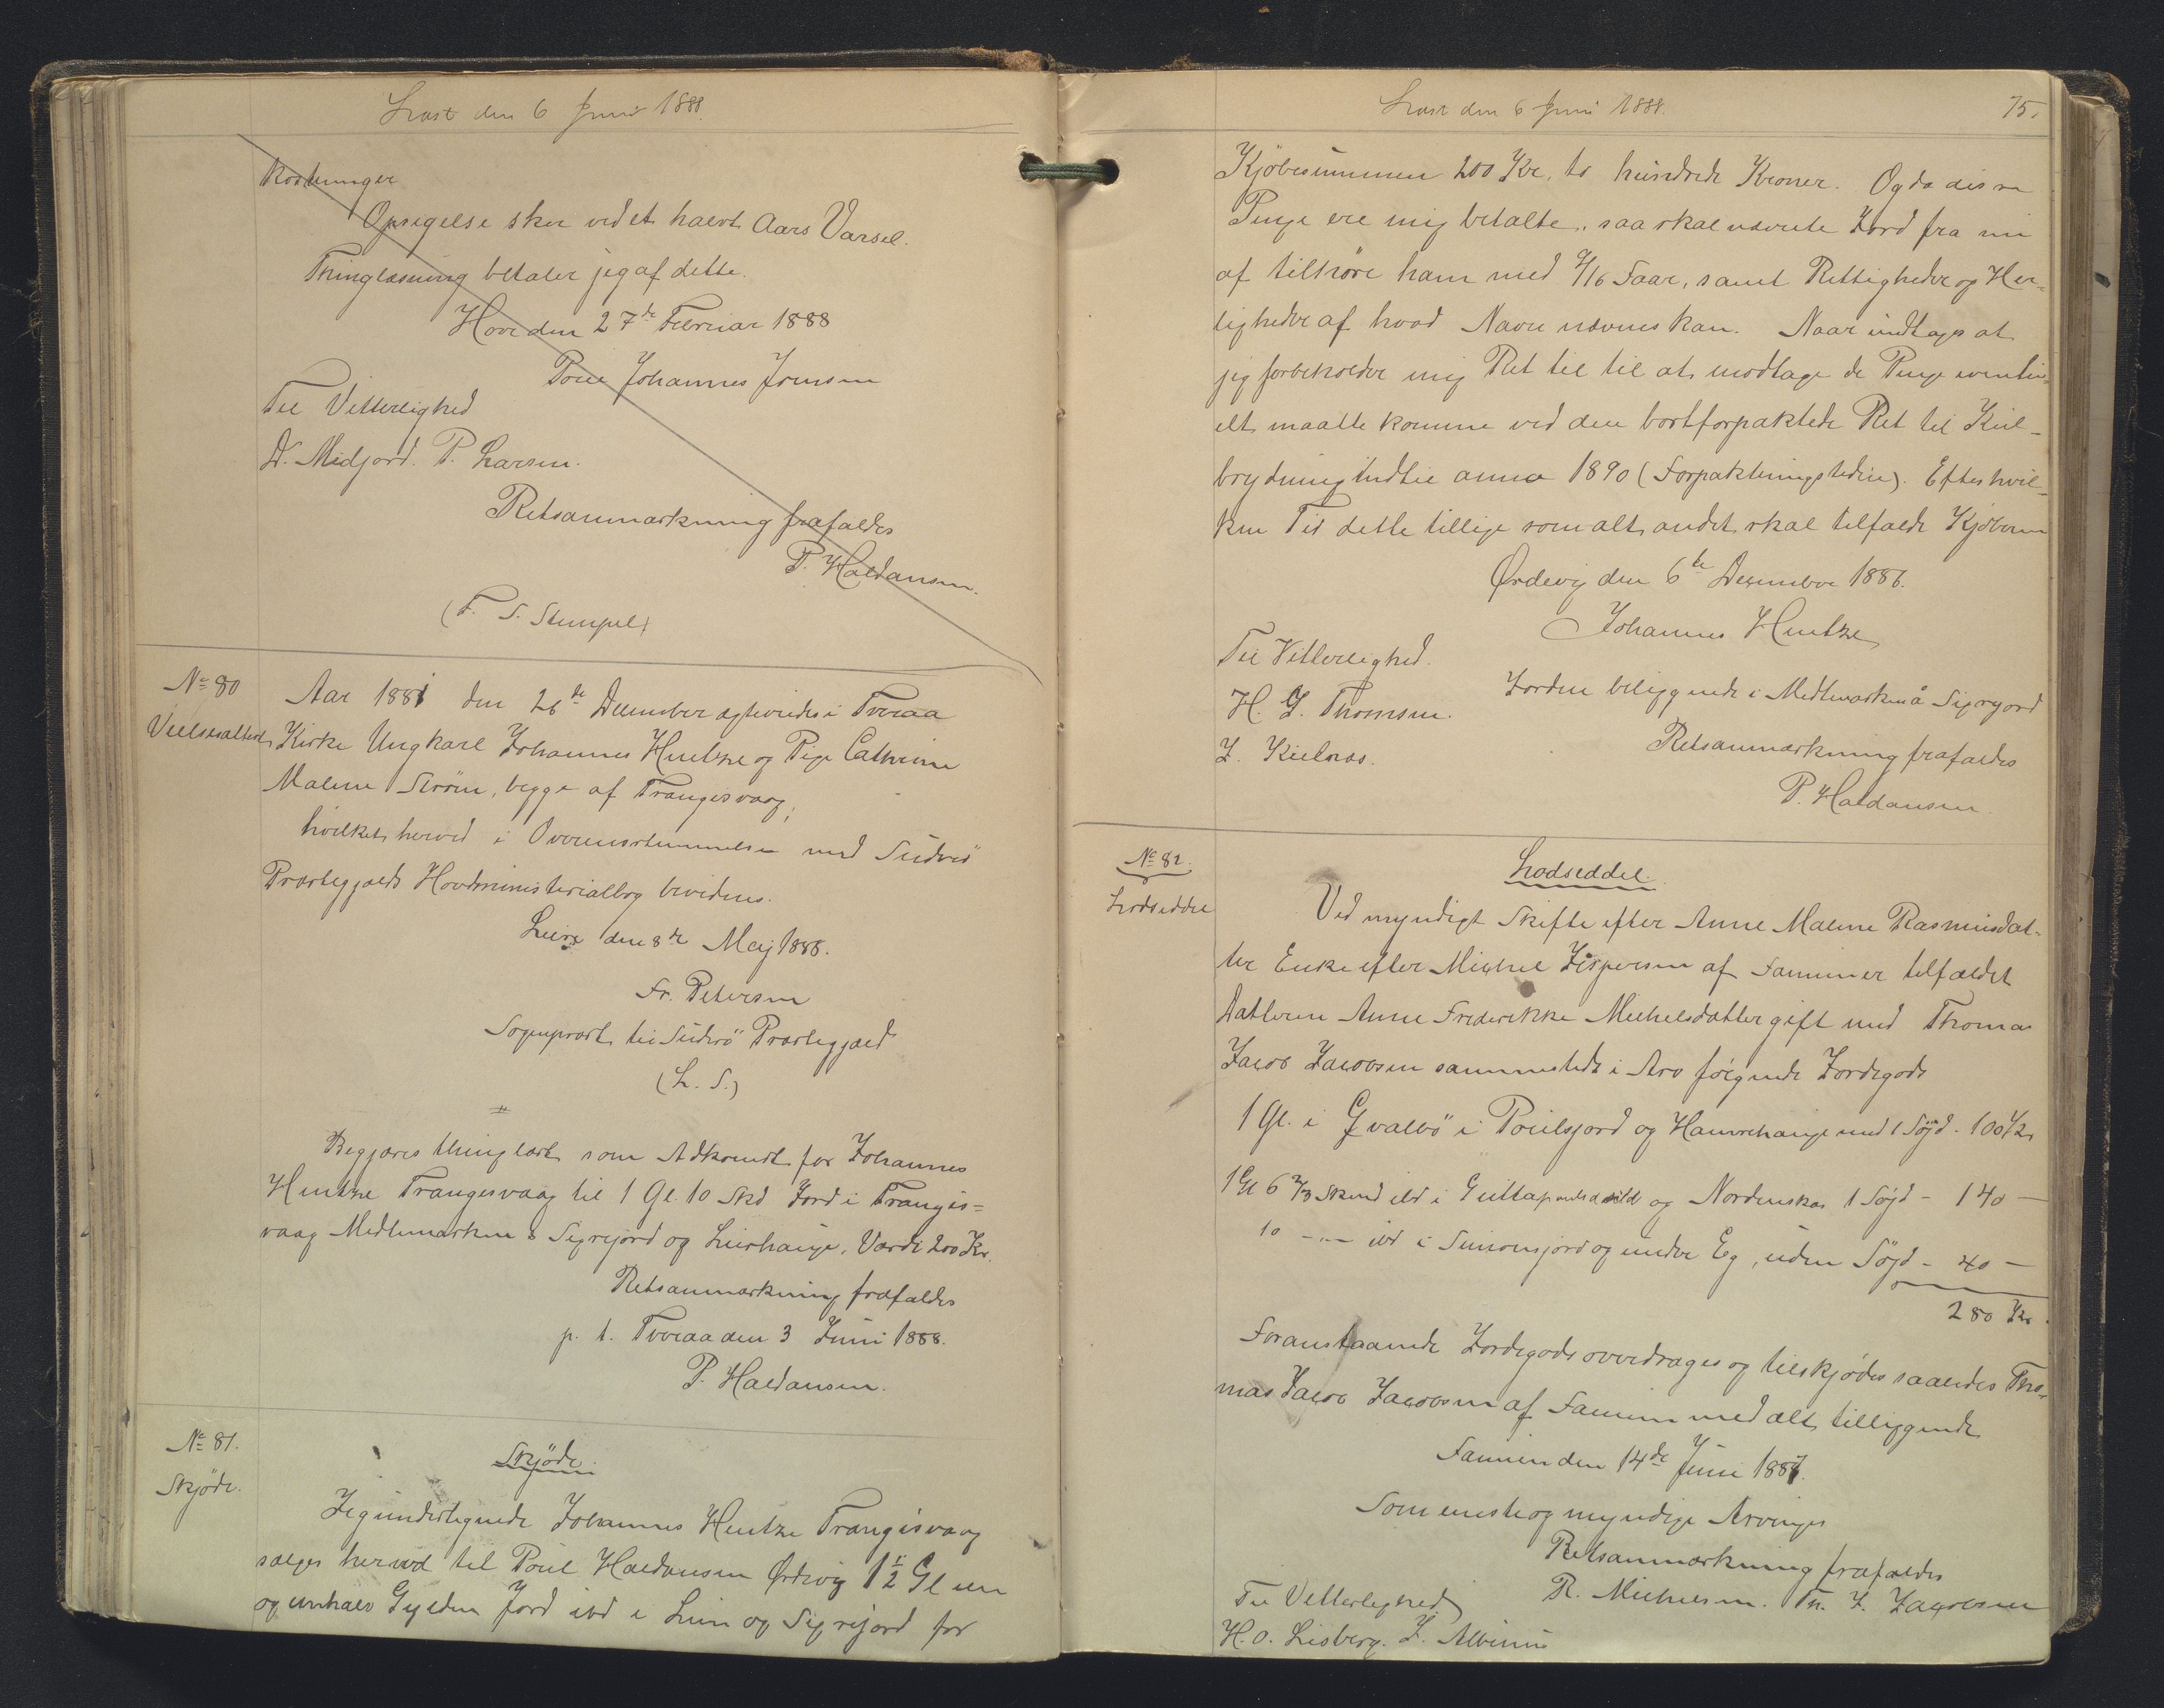 Læst den 6 Juni 1888.
Kostninger
Opsigelse sker ved et halvt Aars Varsel.
Thinglæsning betaler jeg af dette.
Hove den 27de Februar 1888
Poul Johannes Joensen
Til Vitterlighed
D. Midjord. P. Larsen.
Retsanmærkning frafaldes
P. Haldansen.
(F. S. Stempel)
No 80
Aar 1881 den 26de December ægteviedes i Tveraa
Vielsesattest
Kirke Ungkarl Johannes Hentze og Pige Cathrine
Malene Strøm, begge af Trangisvaag,
hvilket herved i Overensstemmelse med Suderö
Præstegjælds Hovedministerialbog bevidnes.
den 8de Maj 1888.
Fr. Petersen
Sognepræst til Suderö Præstegjæld
(L. S.)
Begjæres thinglæst som Adkomst for Johannes
Hentze Trangisvaag til 1 Gl. 10 Skd Jord i Trangis=
vaag Midlemarken & Sigrejord og Leirhauje, Værdi 200 Kr.
Retsanmærkning frafaldes
p. t. Tveraa den 3 Juni 1888.
P. Haldansen.
No 81.
Skjöde.
Skjöde.
Jeg undertegnede Johannes Hentze Trangisvaag
sælger herved til Poul Haldansen Ördevig 1 1/2 Gl en
og en halv Gylden Jord ibd i og Sigrejord for
Læst den 6 Juni 1888.
75.
Kjöbesummen 200 Kr. to hundrede Kroner. Og da disse
Penge ere mig betalte, saa skal nævnte Jord fra nu
af tilhöre ham med Faar, samt Rettigheder og Her=
ligheder af hvad Navn nævnes kan. Naar undtages at
jeg forbeholder mig Ret til til at modtage de Penge eventu=
elt maatte komme ved den bortforpaktede Ret til Kul-
brydning indtil anno 1890 (Forpaktningstiden). Efter hvil=
ken Tid dette tillige som alt andet skal tilfalde Kjöberen
Ørdevig den 6te December 1886.
Johannes Hentze
Til Vitterlighed.
Jorden beliggende i Midlemarken å Sigrejord
H. J. Thomsen.
J. Kjelnæs.
Retsanmærkning frafaldes
P. Haldansen
No 82.
Lodseddel
Lodseddel.
Ved myndigt Skifte efter Anne Malene Rasmusdat-
ter Enke efter Michel Jespersen af Famien er tilfaldet
Datteren Anne Frederikke Michelsdatter gift med Thomas
Jacob Jacobsen sammesteds i Arv følgende Jordegods
1 Gl. i Qvalbö i Poulsjord og Hamrehauje med 1 Söjd - 100 Kr
1 Gl 6 2/3 Skind ibd i og 1 Söjd - 140 -
10 -"- ibd i Simonsjord og under Eg, uden Söjd - 40 -
280 Kr.
Foranstaaende Jordegods overdrages og tilskjødes saaledes Tho-
mas Jacob Jacobsen af Famien med alt tilliggende
Famien den 14de Juni 1887.
Som eneste og myndige Arvinger
Retsanmærkning frafaldes
R. Michelsen. Th. J. Jacobsen
Til Vitterlighed
H. O. Lisberg. J. Albinus